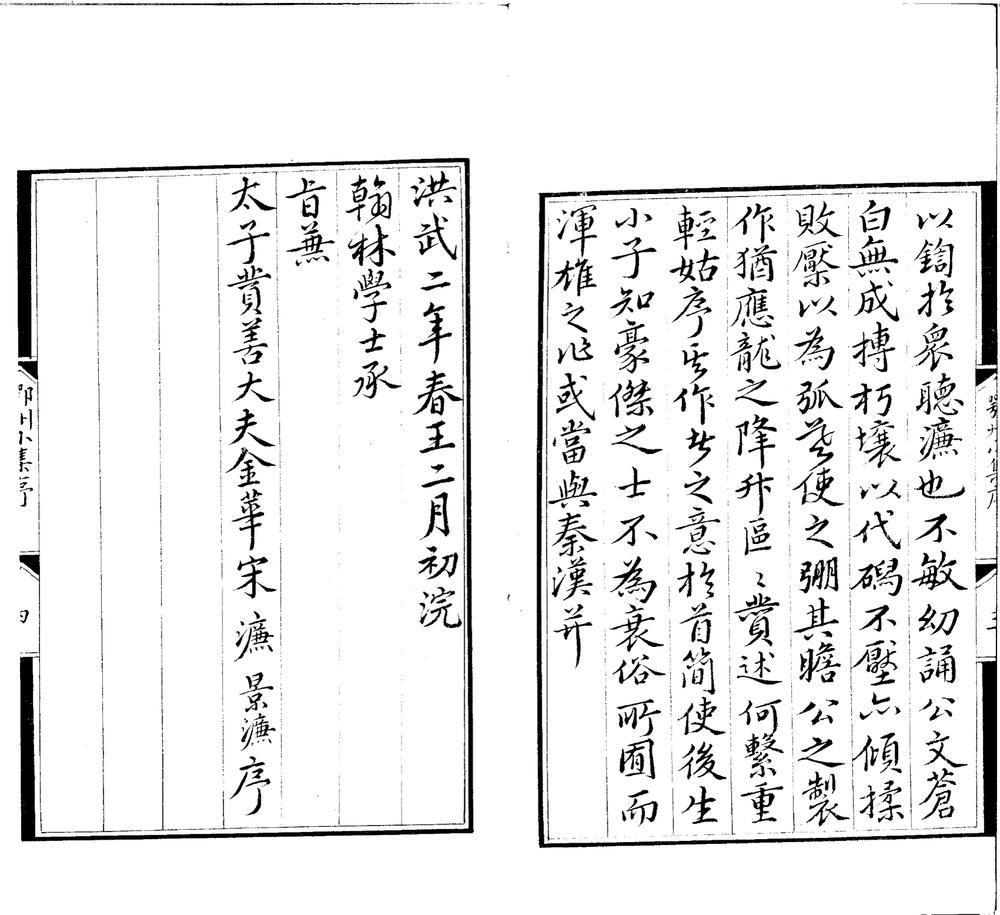 以鍧於衆聽濂也不敏幼誦公文蒼
白無成摶朽壤以代碣不壓亦傾揉
敗檿以為弧莫使之弸其瞻公之製
作猶應龍之降升區〻贊述何繫重
輕姑序其作者之意於首簡使後生
小子知豪傑之士不為衰俗所囿而
渾雄之作或當與秦漢并
鄂州小集序
三
洪武二年春王二月初浣
翰林學士承
旨兼
太子贊善大夫金華宋濂景濂序
鄂州小集序
四